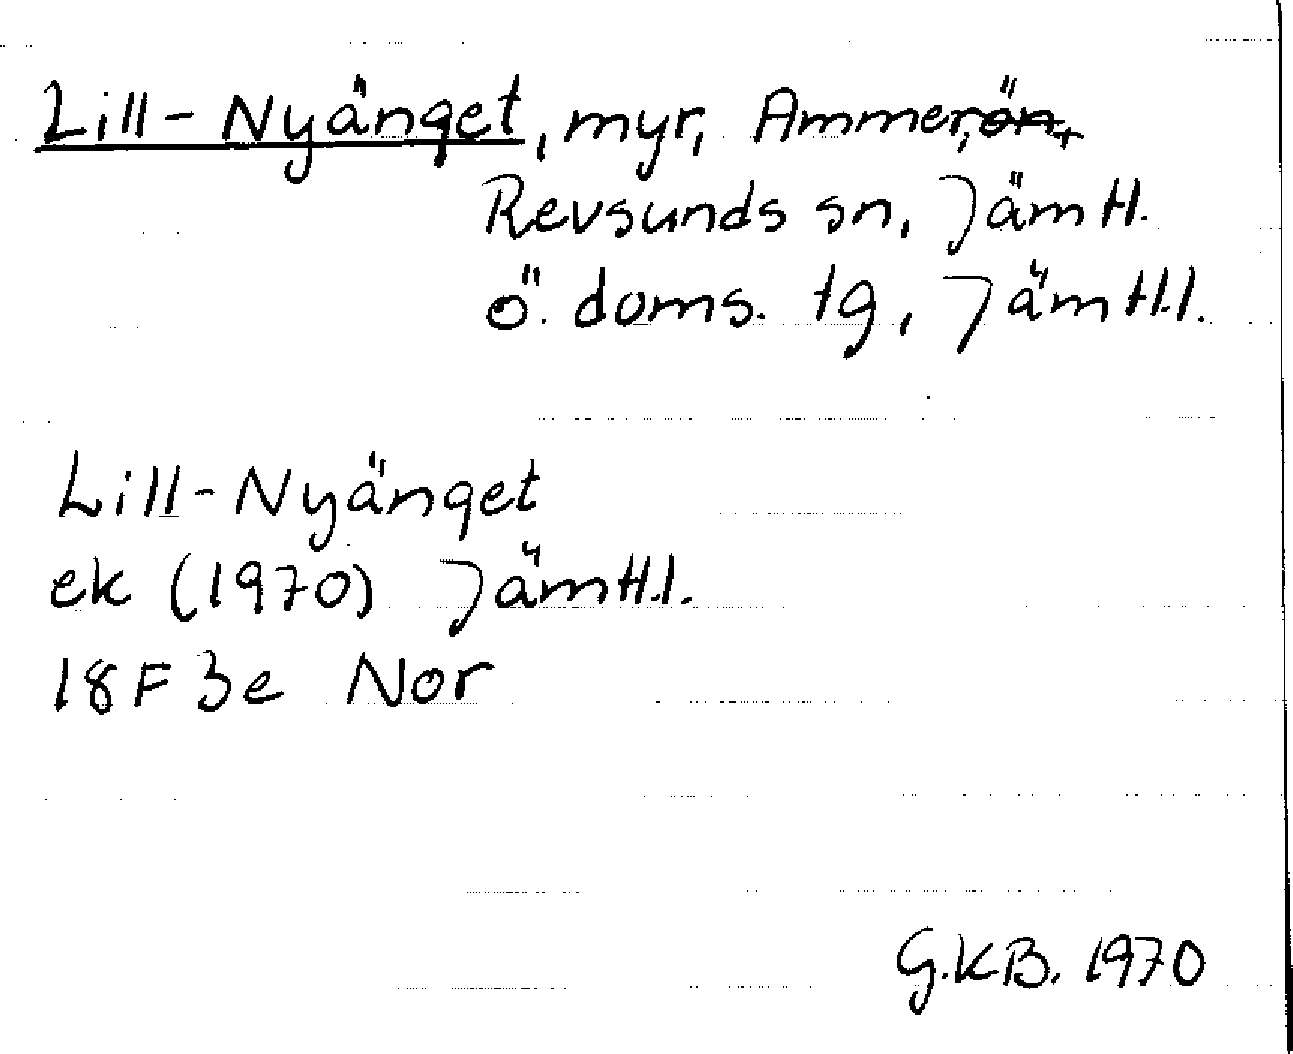 Lill-Nyänget, myr, Ammer,
Revsunds sn, Jämtl.
ö. doms. tg, Jämtl.l.
Lill-Nyänget
ek (1970) Jämtl.l.
18F 3e Nor
G.KB. 1970